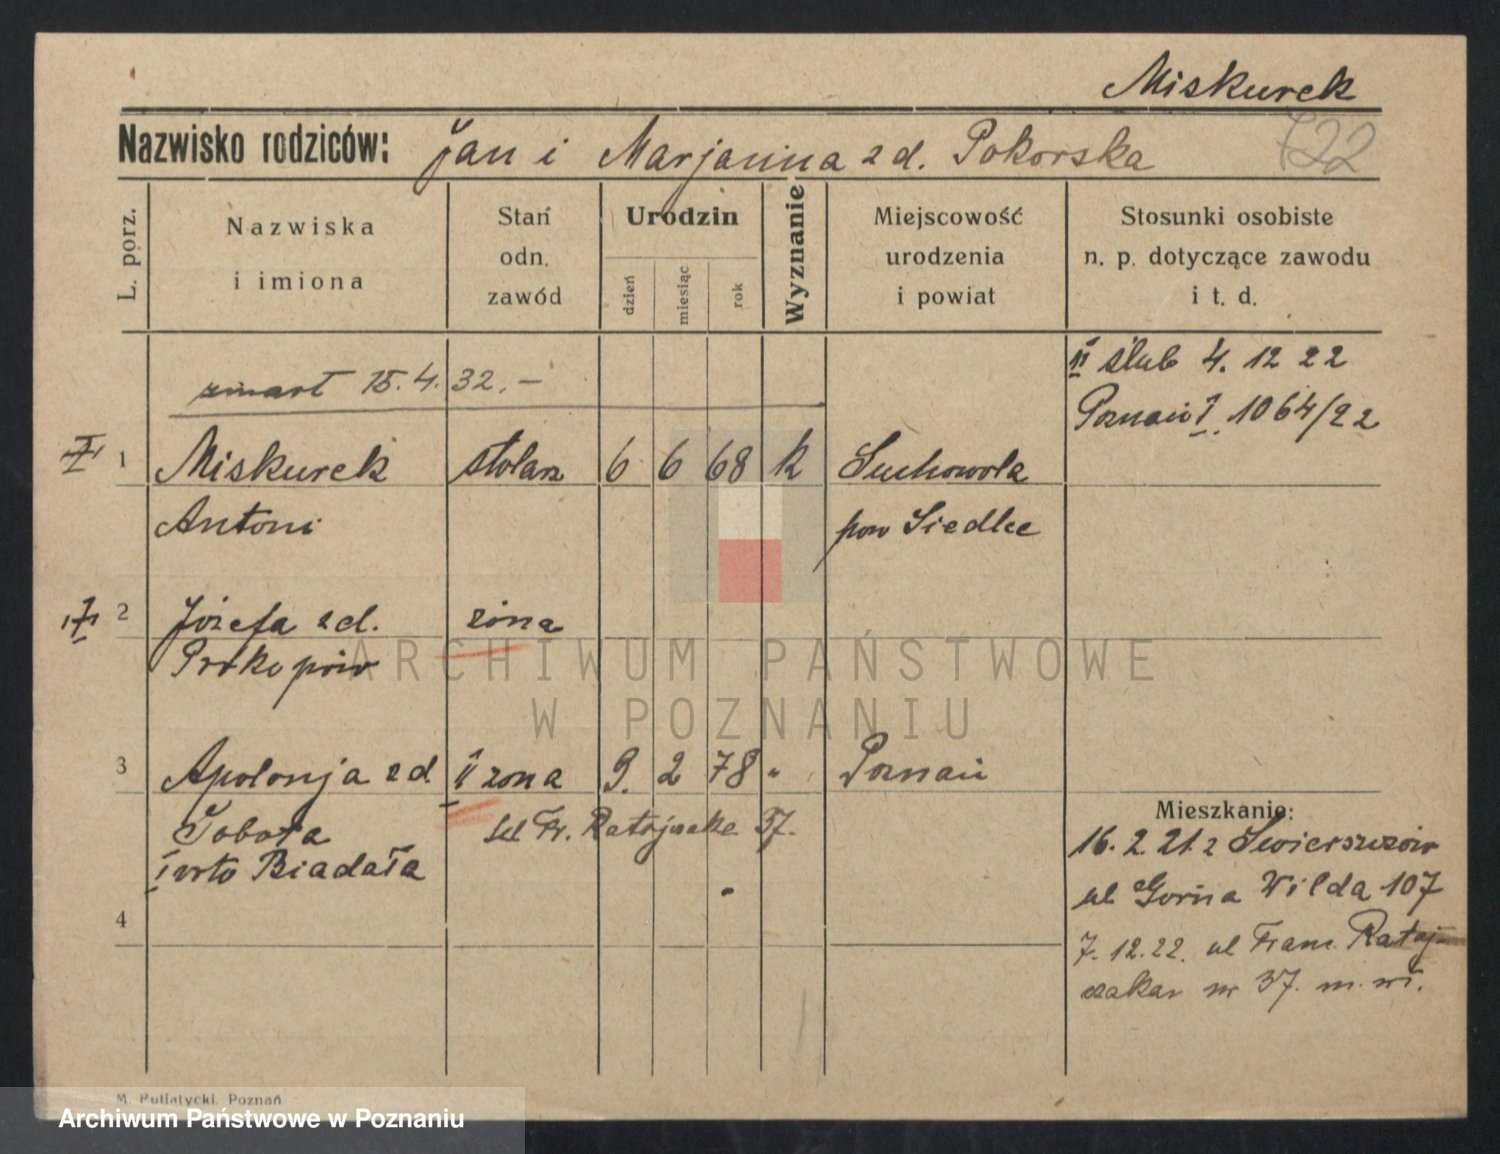 Miskurek
722
Nazwisko rodziców: Jan i Marjanna z d. Pokorska
L. porz.
Nazwiska
i imiona
Stan
odn.
zawód
Urodzin
dzień
miesiąc
rok
Wyznanie
Miejscowość
urodzenia
i powiat
Stosunki osobiste
n. p. dotyczące zawodu
i t. d.
II ślub 4. 12 22
Poznań I. 1064/22
zmart 15.4.32.-
1 Miskurek stolarz 6 6 68 k Suchowola
Antoni pow Siedlce
2 Józefa z d. żona
Prokopów
3 Apolonja z d. II żona 9. 2 78 " Poznań
Sobota ul Fr. Ratajczaka 37.
I voto Biadała
4
Mieszkanie:
16. 2. 21. z Świerszczów
ul Górna Wilda 107
7. 12. 22. ul Franc. Rataj-
czaka nr 37. m. wł.
M. Putiatycki, Poznań
ARCHIWUM PAŃSTWOWE
W POZNANIU
Archiwum Państwowe w Poznaniu